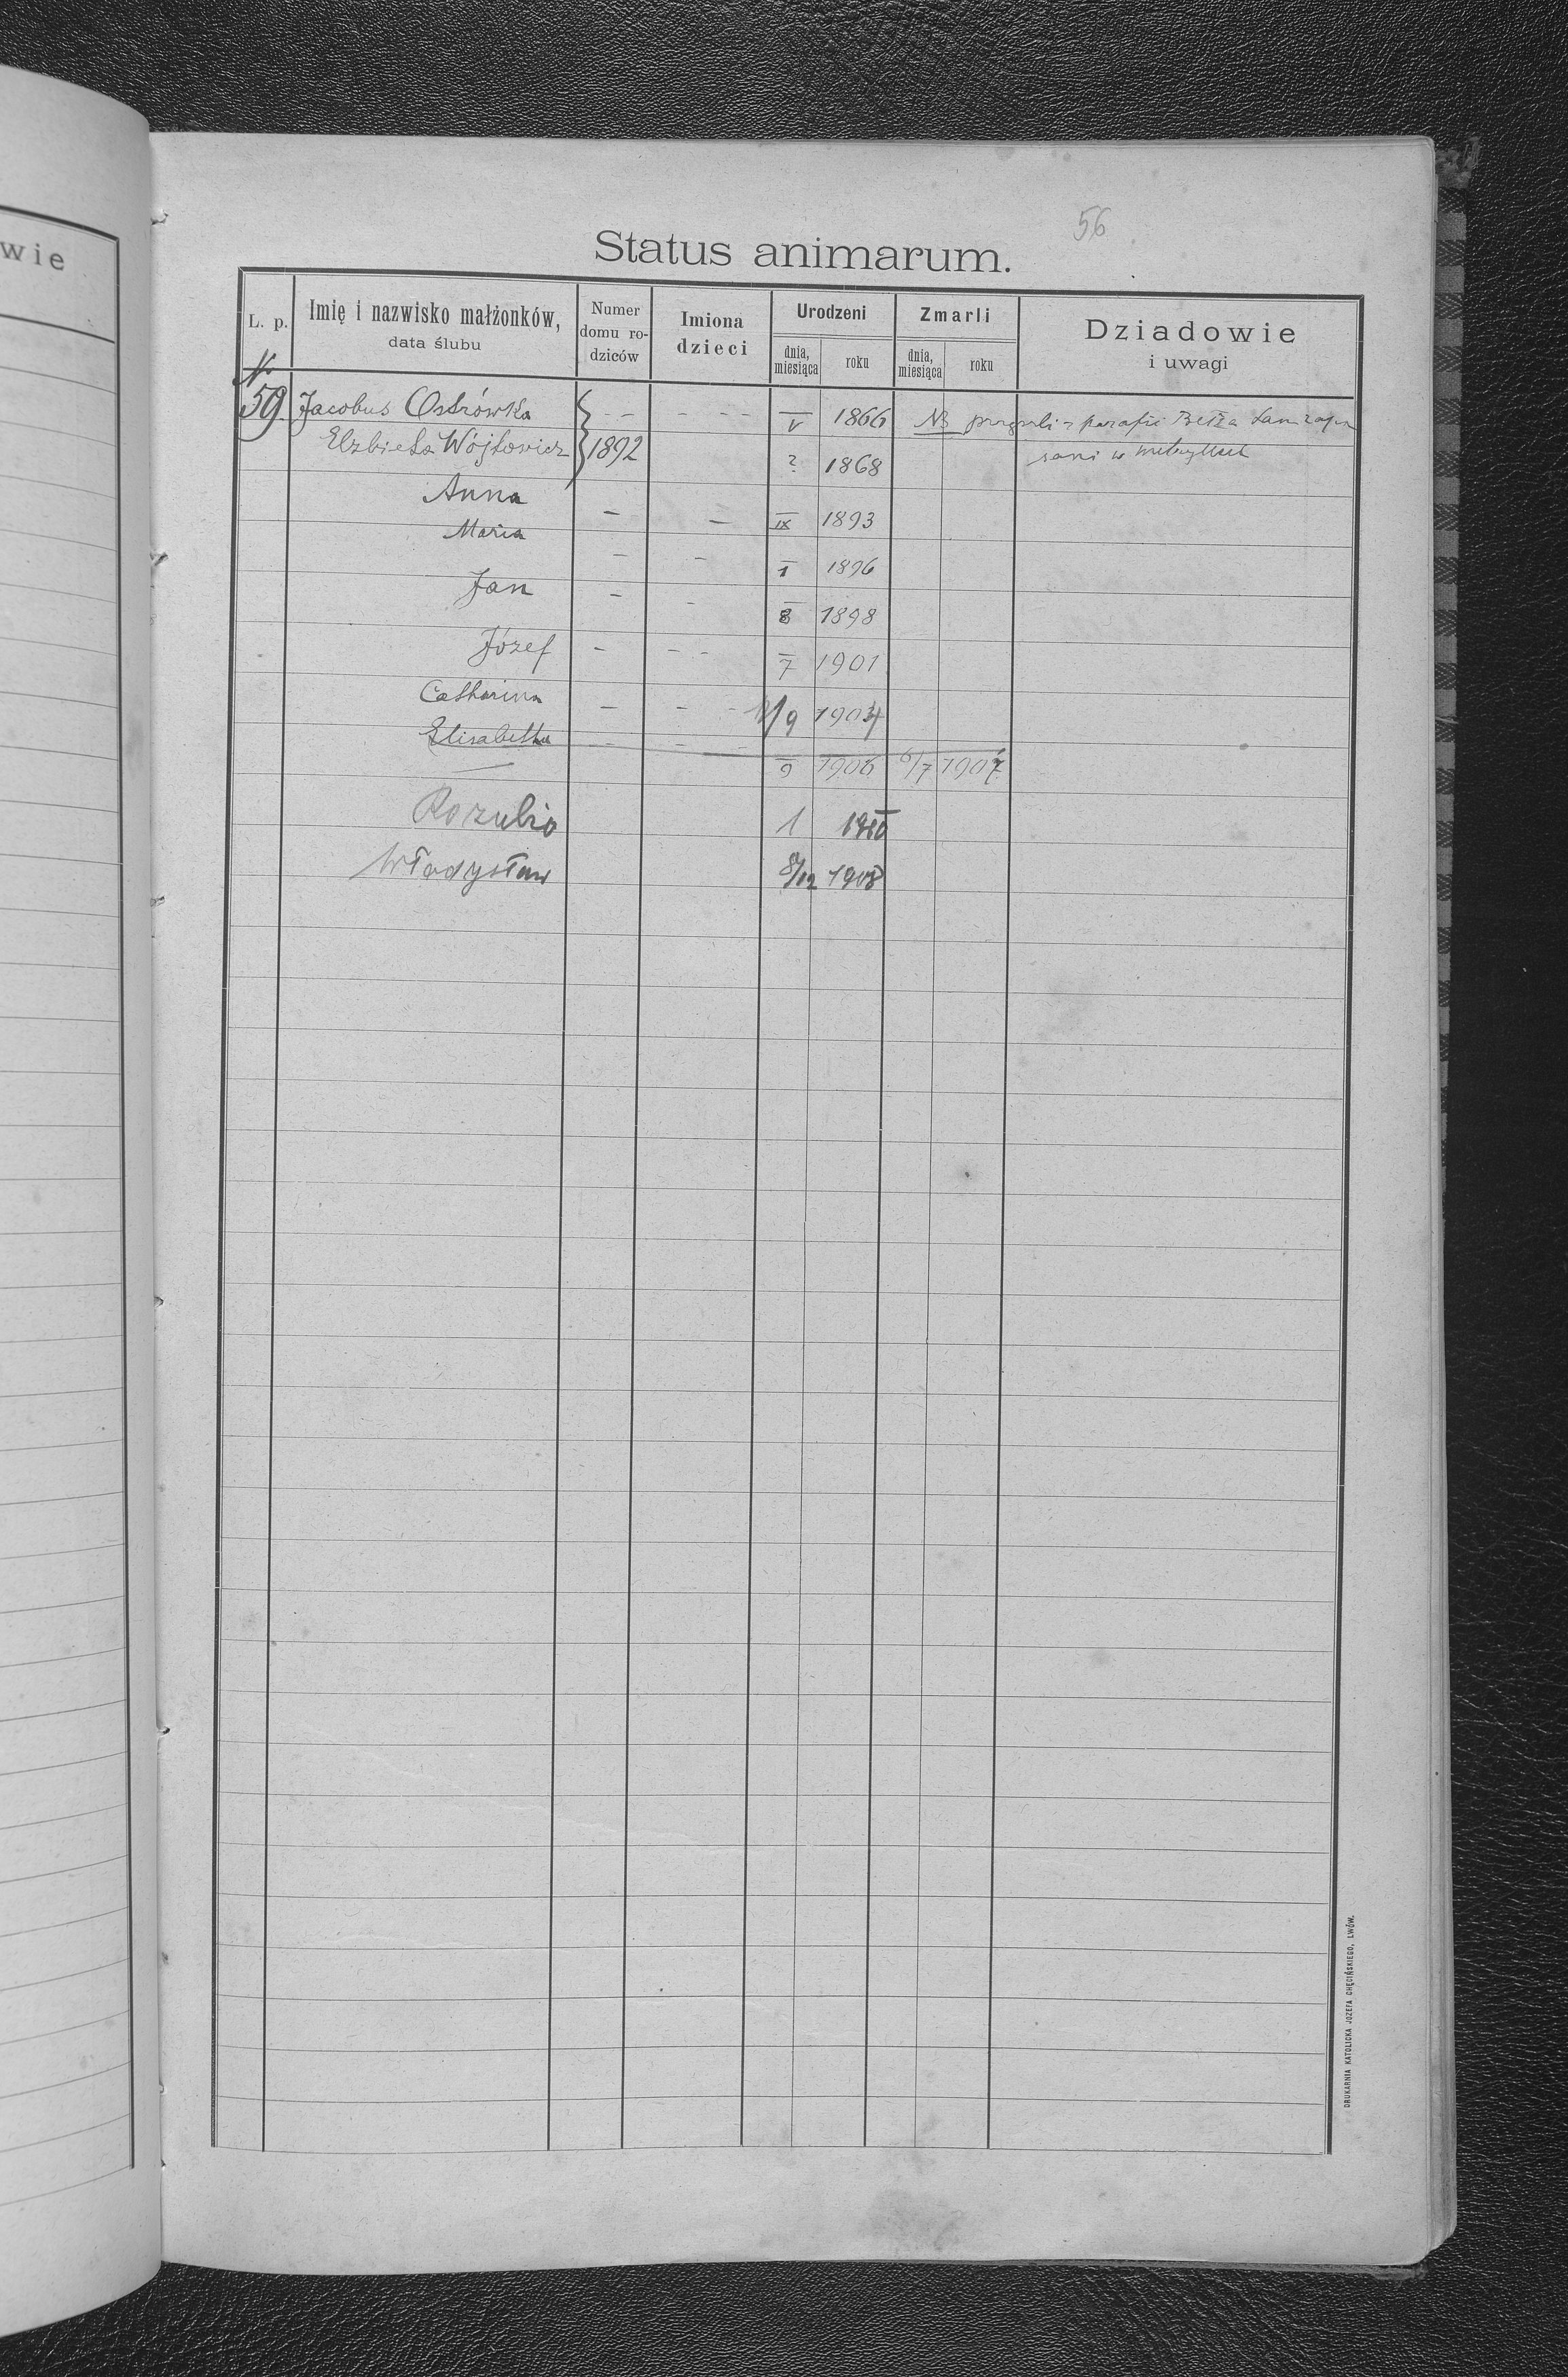 wie
56
Status animarum.
L. p. Imię i nazwisko małżonków, data ślubu Numer domu rodziców Imiona dzieci Urodzeni dnia, miesiąca roku Zmarli dnia, miesiąca roku Dziadowie i uwagi
N
59. Jacobus Ostrówka - - - - - - V 1866 NB z parafii Bełza tam
Elzbieta Wójtowicz 1892 ? 1868 w
Anna - - IX 1893
Maria - - 1 1896
Jan - - 8 1898
Józef - - - 7 1901
Catharina - - - /9 1904
Elisabetha - - - - 9 1906 6/7 1907
Rozalia 1 1910
Władysław 8/12 1908
DRUKARNIA KATOLICKA JOZEFA CHĘCIŃSKIEGO, LWÓW.